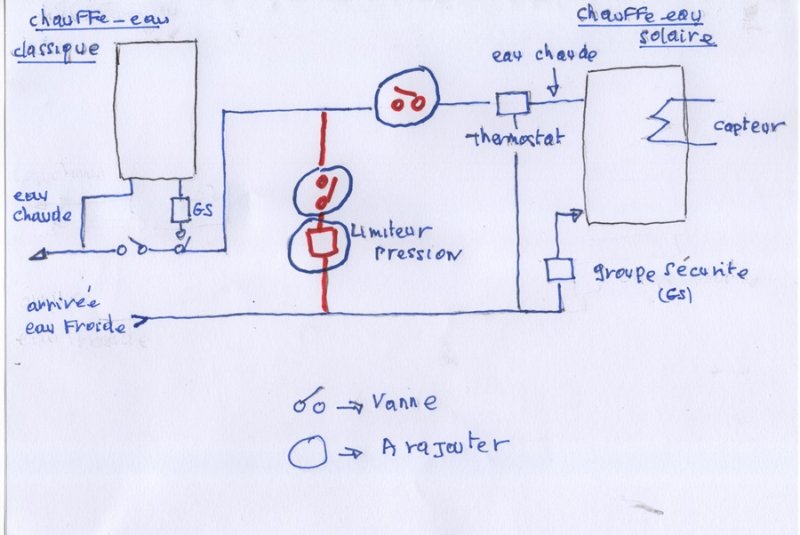 chauffe-eau
classique
chauffe-eau
solaire
eau chaude
Thermostat
capteur
eau
chaude
GS
Limiteur
Pression
groupe sécurite
(GS)
arrivée
eau Froide
Vanne
A rajouter